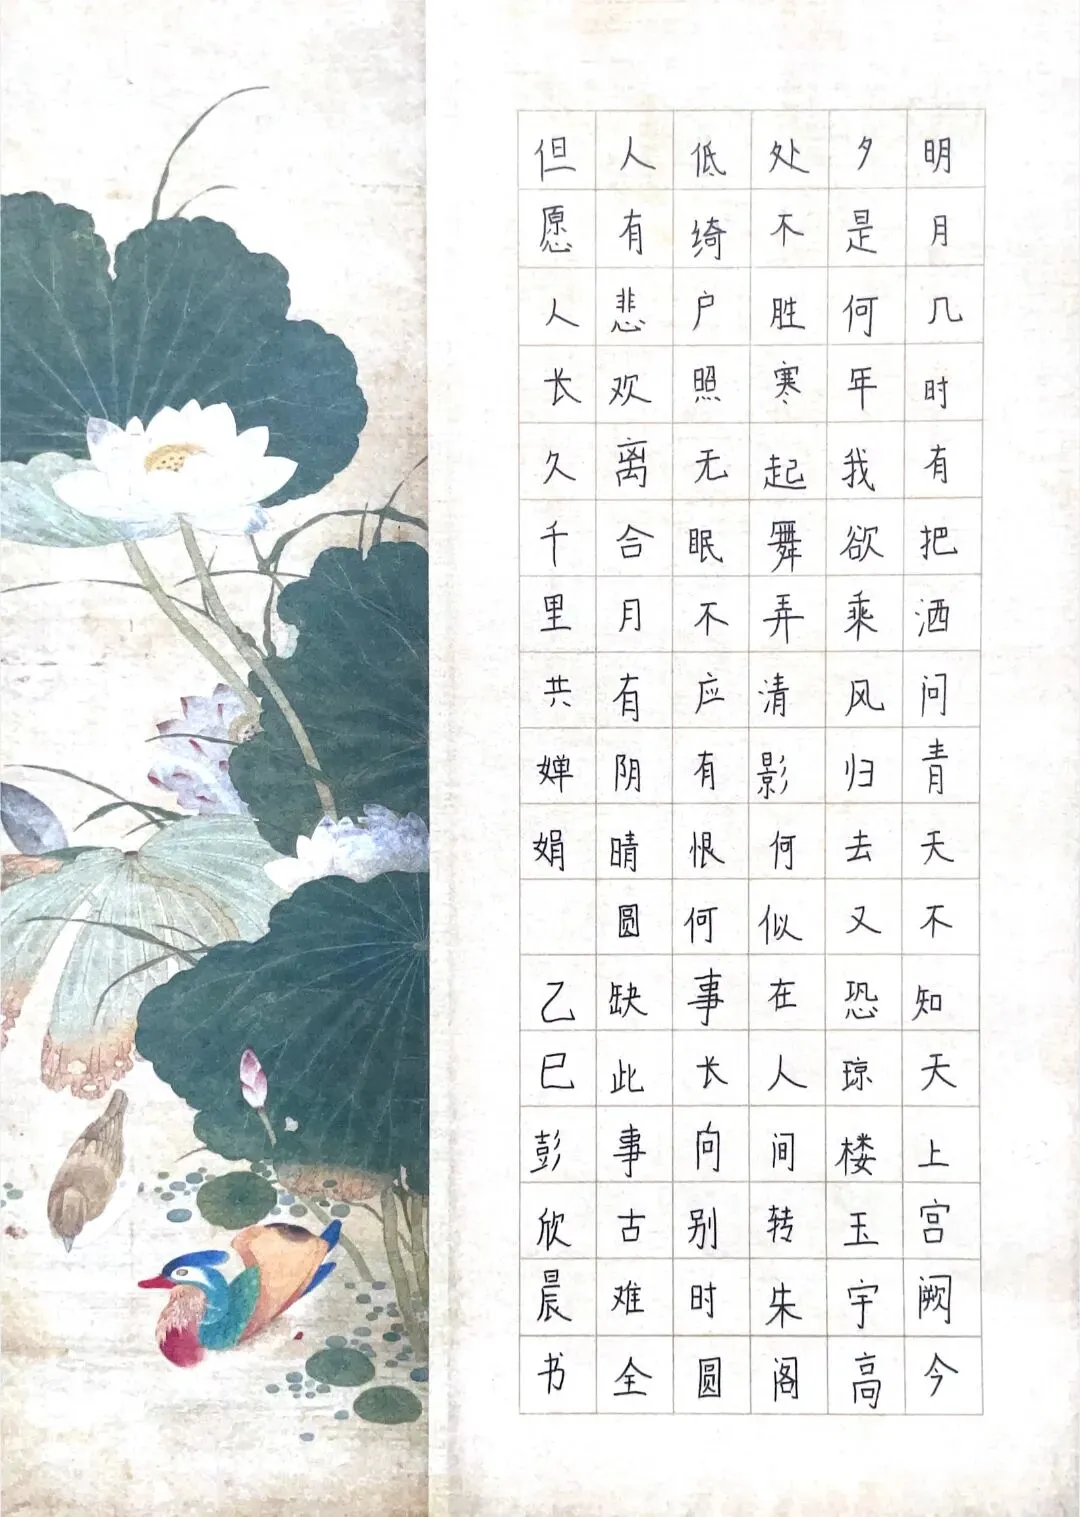 明月几时有把洒问青天不知天上宫阙今
夕是何年我欲乘风归去又恐琼楼玉宇高
处不胜寒起舞弄清影何似在人间转朱阁
低绮户照无眠不应有恨何事长向别时圆
人有悲欢离合月有阴晴圆缺此事古难全
但愿人长久千里共婵娟 乙巳彭欣晨书